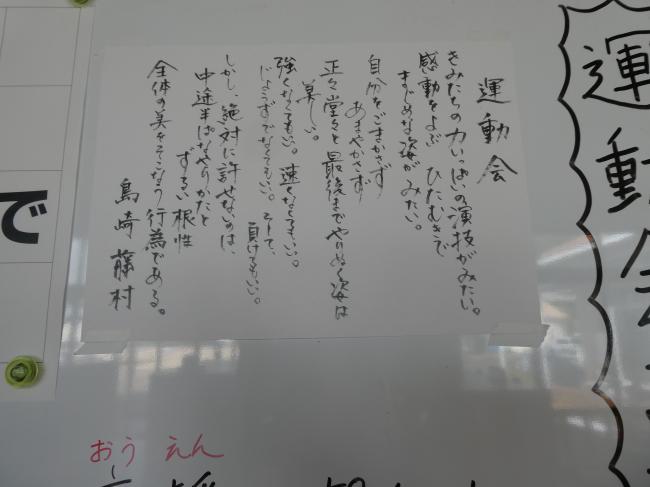 運動会
きみたちの力いっぱいの演技がみたい。
感動をよぶ ひたむきで
まじめな姿が みたい。
自分をごまかさず
あまやかさず
正々堂々と最後までやりぬく姿は
美しい。
強くなくてもいい。速くなくてもいい。
じょうずでなくてもいい。そして、
負けてもいい。
しかし、絶対に許せないのは、
中途半ぱなやりかたと
ずるい根性
全体の美をそこなう行為である。
島崎藤村
運動会
で
おうえん